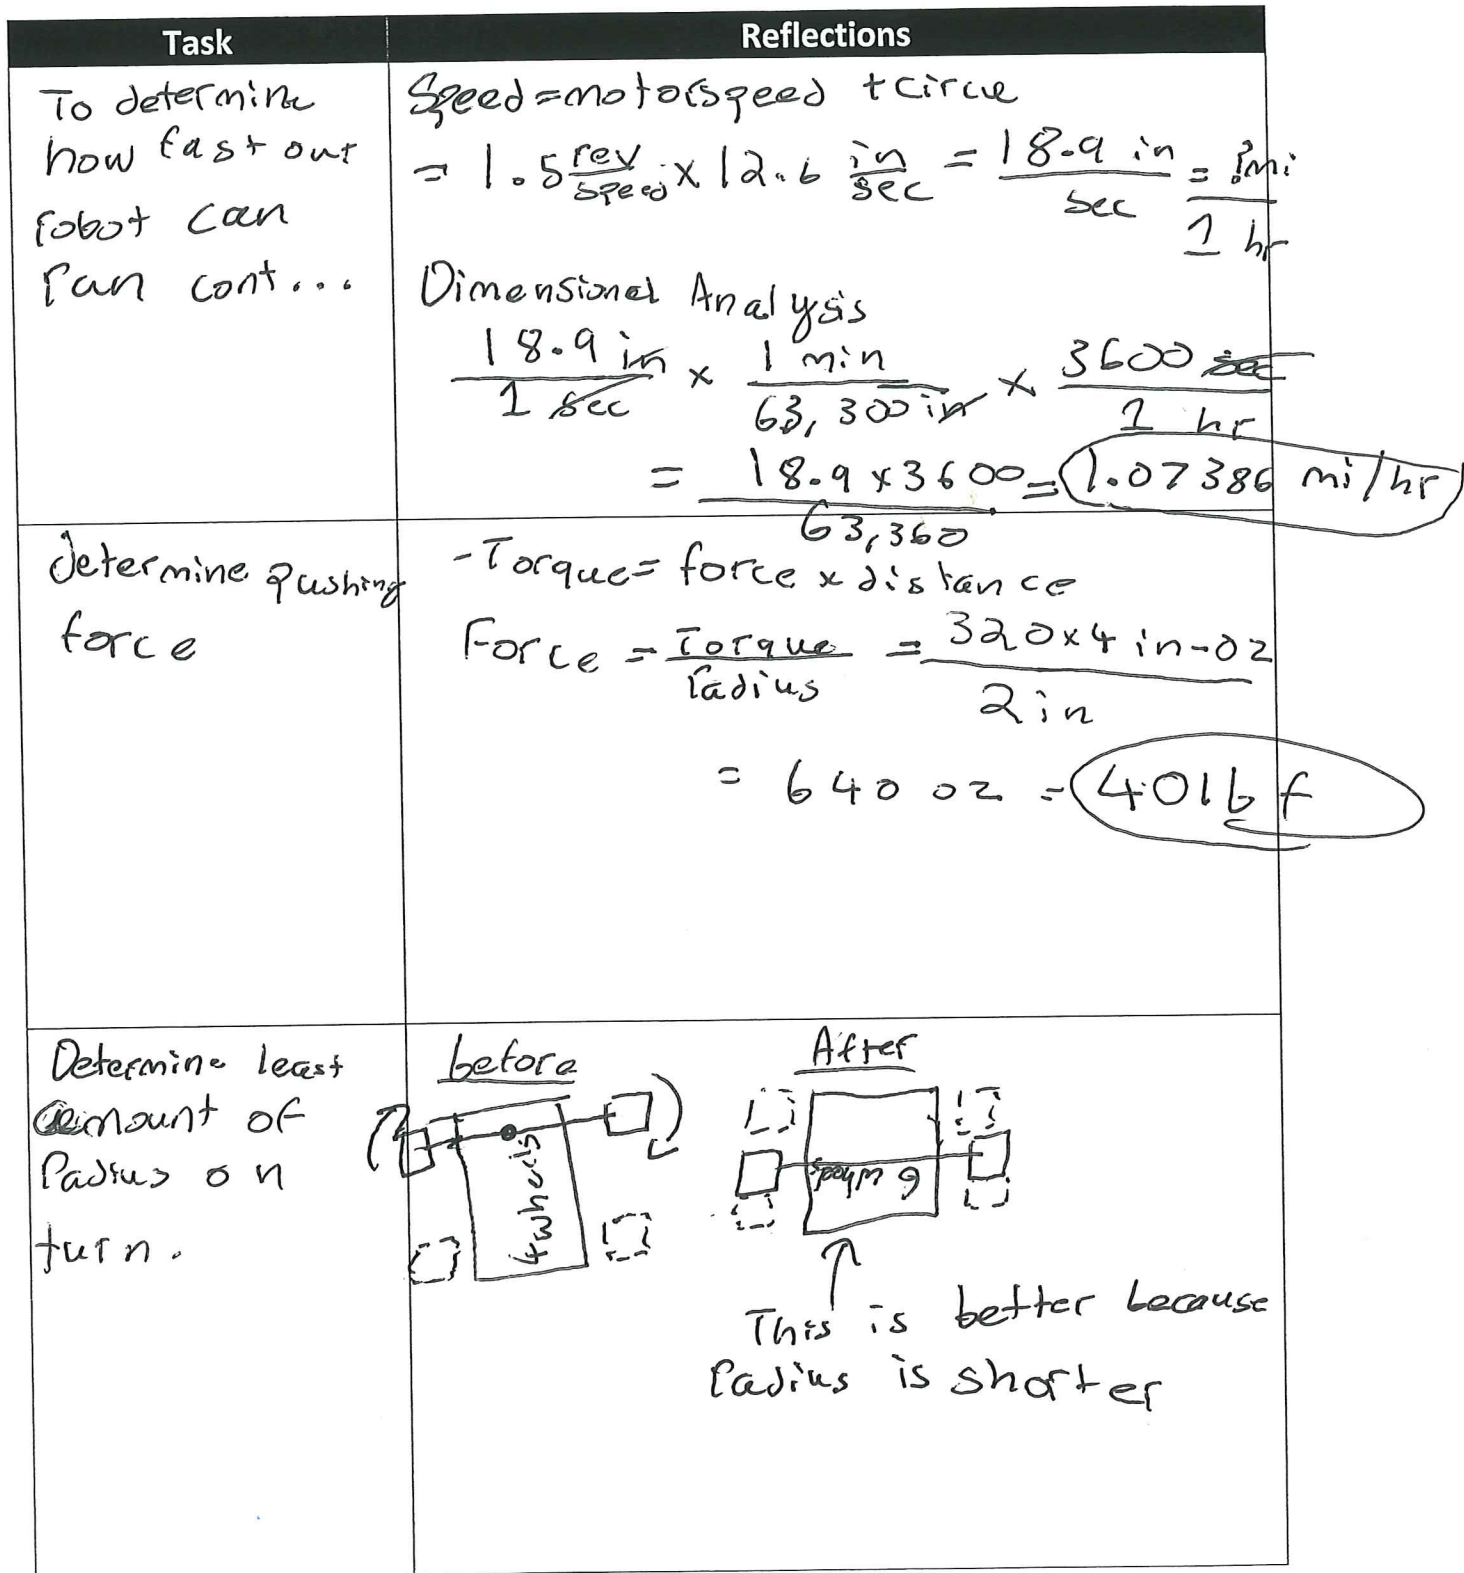 Task
Reflections
To determine
how fast our
robot can
ran cont...
Speed = motorspeed + circle
= 1.5 rev/speed × 12.6 in/sec = 18.9 in/sec = ?mi/1 hr
Dimensional Analysis
18.9 in/1 sec × 1 min/63,300 in × 3600 sec/1 hr
= 18.9 × 3600/63,360 = 1.07386 mi/hr
determine pushing
force
- Torque = force × distance
Force = Torque/radius = 320×4 in-oz/2 in
= 640 oz = 40 lb f
Determine least
amount of
Radius on
turn.
before
4 wheels
After
6 wheels
This is better because
radius is shorter